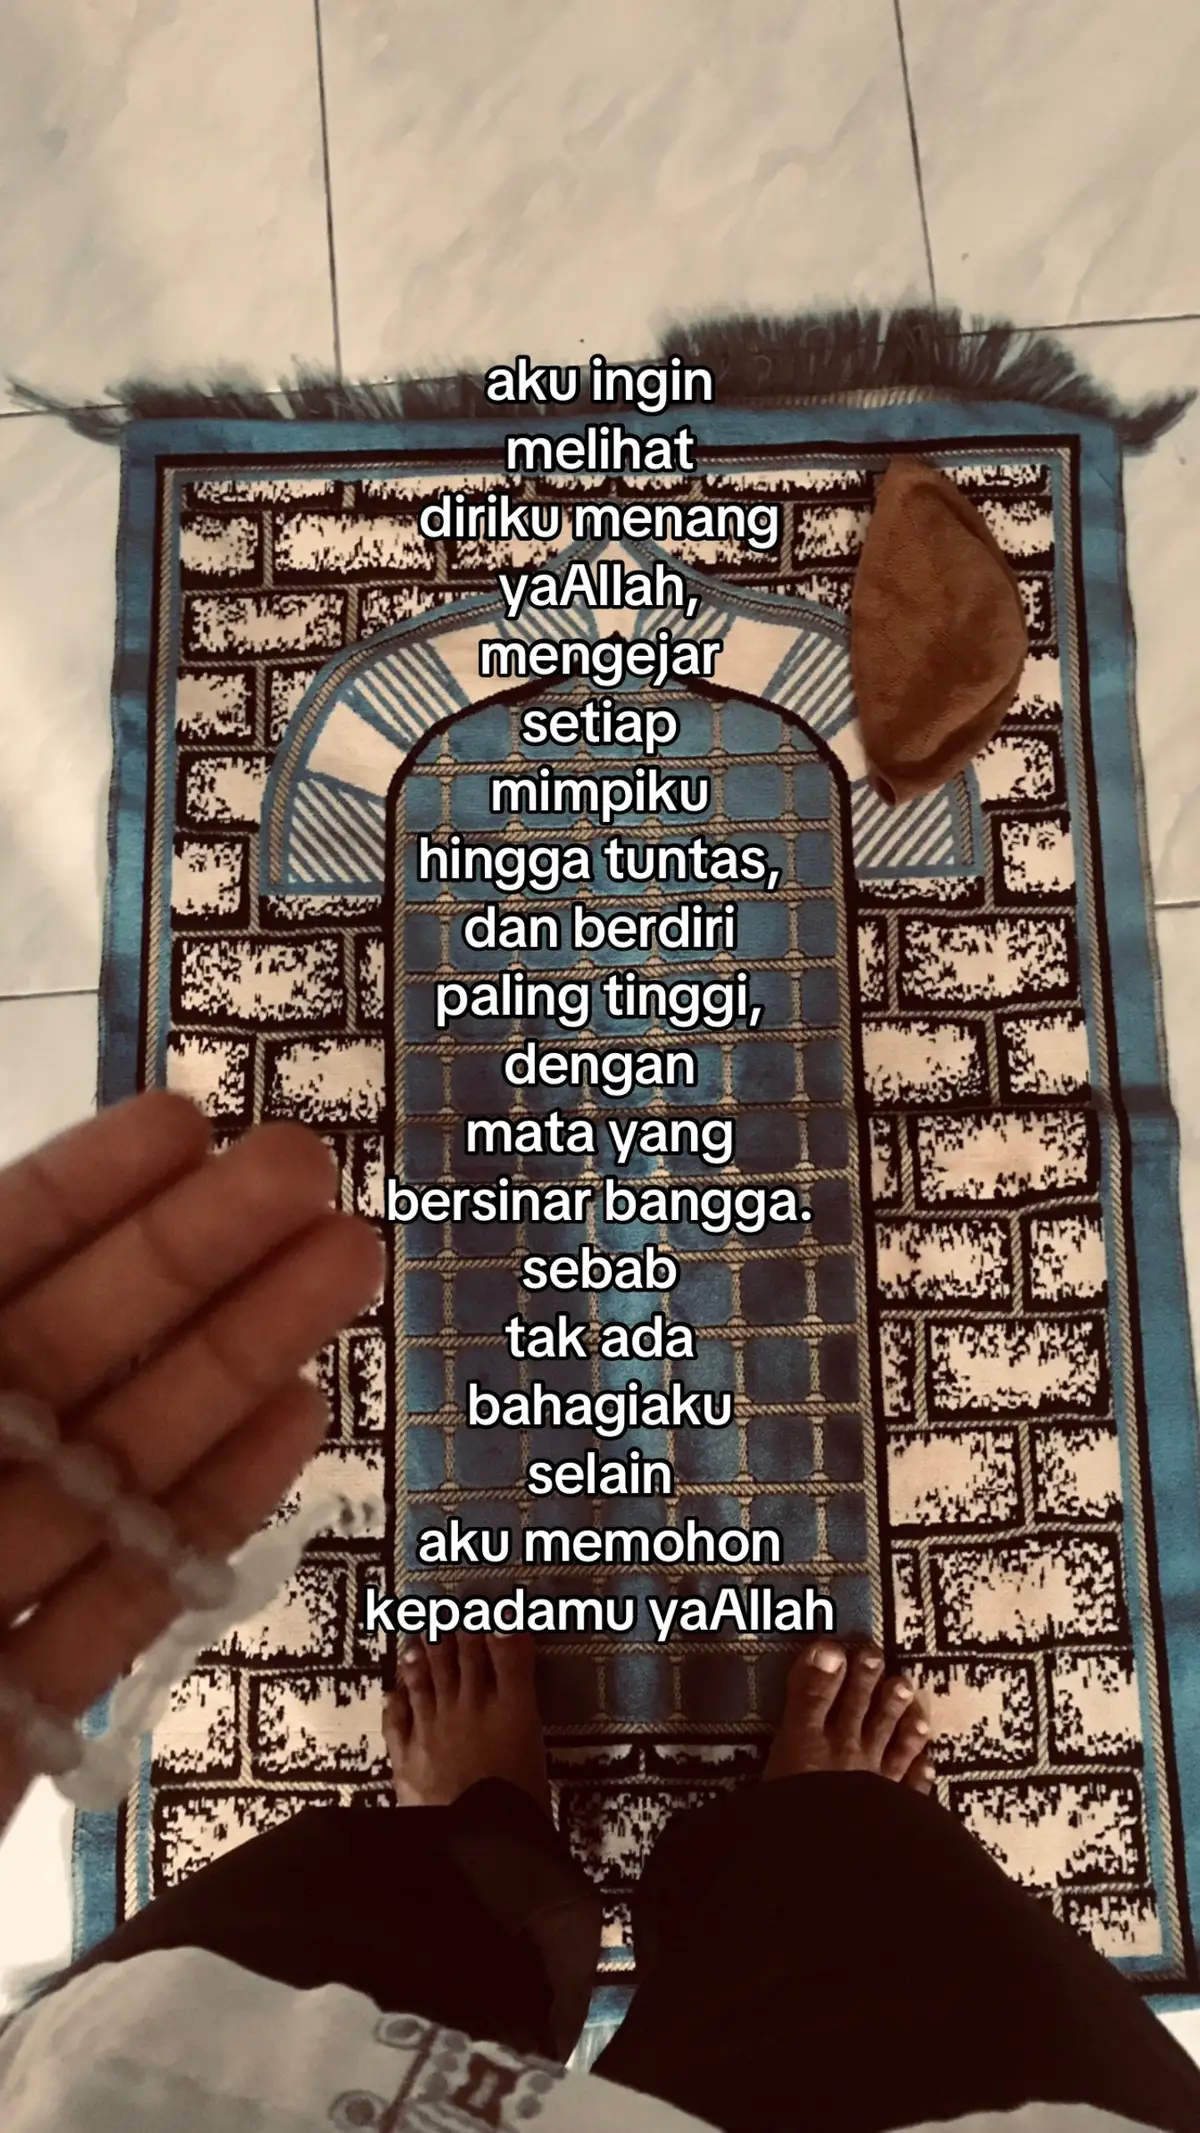 aku ingin
melihat
diriku menang
yaAllah,
mengejar
setiap
mimpiku
hingga tuntas,
dan berdiri
paling tinggi,
dengan
mata yang
bersinar bangga.
sebab
tak ada
bahagiaku
selain
aku memohon
kepadamu yaAllah